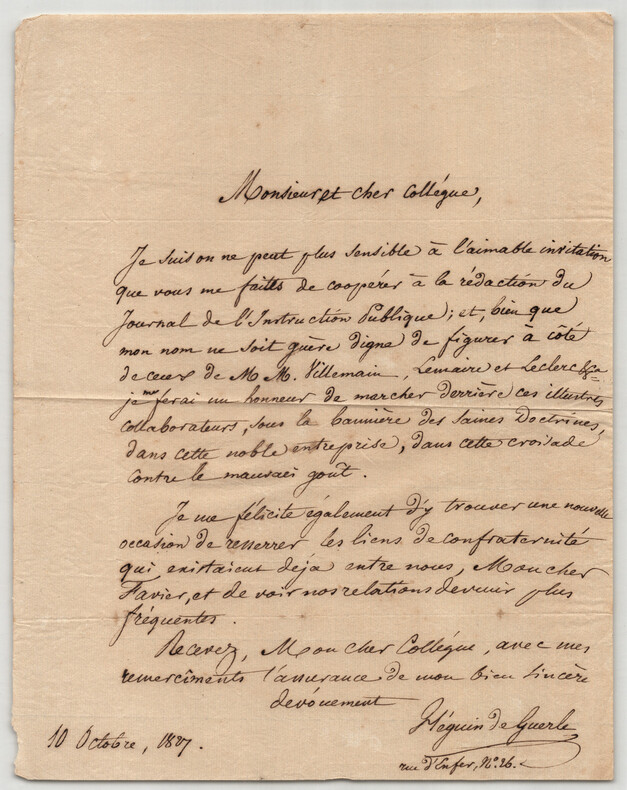 Monsieur et cher Collégue,
Je suis on ne peut plus sensible à l'aimable invitation
que vous me faites de coopérer à la rédaction du
Journal de l'Instruction Publique; et, bien que
mon nom ne soit guère digne de figurer à côté
de ceux de M M. Villemain, Lemaire et Leclerc &ca
je me ferai un honneur de marcher derrière ces illustres
collaborateurs, sous la bannière des saines Doctrines,
dans cette noble entreprise, dans cette croisade
contre le mauvais goût.
Je me félicite également d'y trouver une nouvelle
occasion de resserrer les liens de confraternité
qui existaient déja entre nous, Mon cher
Favier, et de voir nos relations devenir plus
fréquentes.
Recevez, Mon cher Collégue, avec mes
remercîments l'assurance de mon bien sincère
dévouement
Héguin de Guerle
10 Octobre, 1827.
rue d'Enfer, No. 26.